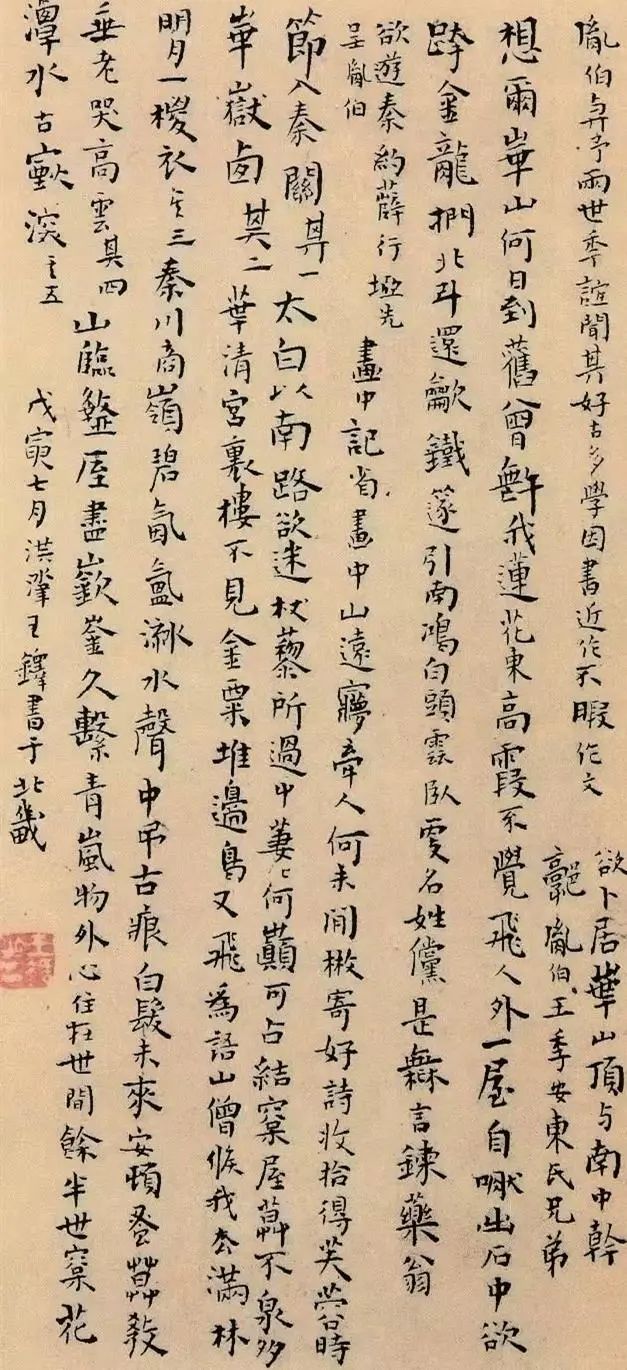 胤伯與予兩世季誼聞其好古多學因書近作不暇作文
欲卜居華山頂与南中幹
胤伯王季安東氏兄弟
想爾華山何日到舊曾許我蓮花東高霞不覺飛人外一屋自獸出石中欲
跨金龍捫北斗還歙鐵篴引南鴻白頭雲臥更名姓儻是無言鍊藥翁
欲遊秦約薜行塢先
呈胤伯
畫中記省畫中山遠夢牽人何未閒檄寄好詩收拾得芙蓉時
節入秦關其一太白以南路欲迷杖藜所過中萋萋何巔可占結窠屋暮不泉多
華嶽卣其二華清宮裏樓不見金粟堆邊鳥又飛為語山僧候我去滿林
明月一稷衣其三秦川商嶺碧氤氳淋水聲中吊古痕白髮未來安頓蚤暮教
垂老哭高雲其四山臨盩厔盡嶔崟久繫青嵐物外心住在世間餘半世窠花
潭水古巖深其五
戊寅七月洪澤王鐸書于北畿